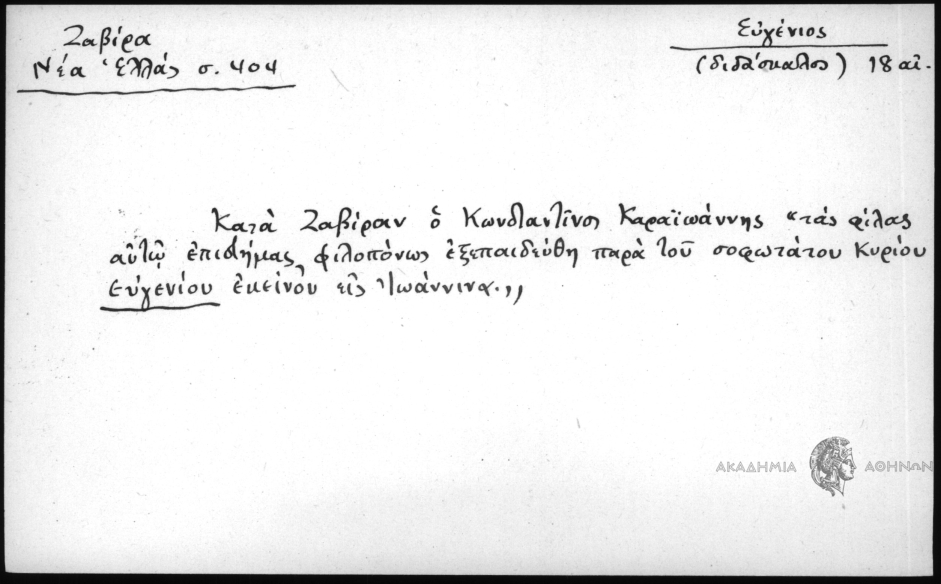 Ζαβίρα
Νέα Ἑλλάς σ. 404
Εὐγένιος
(διδάσκαλος) 18 αἰ.
Κατὰ Ζαβίραν ὁ Κωνσταντῖνος Καραϊωάννης "τὰς φίλας
αὐτῷ ἐπιστήμας φιλοπόνως ἐξεπαιδεύθη παρὰ τοῦ σοφωτάτου Κυρίου
Εὐγενίου ἐκείνου εἰς Ἰωάννινα.„
ΑΚΑΔΗΜΙΑ ΑΘΗΝΩΝ